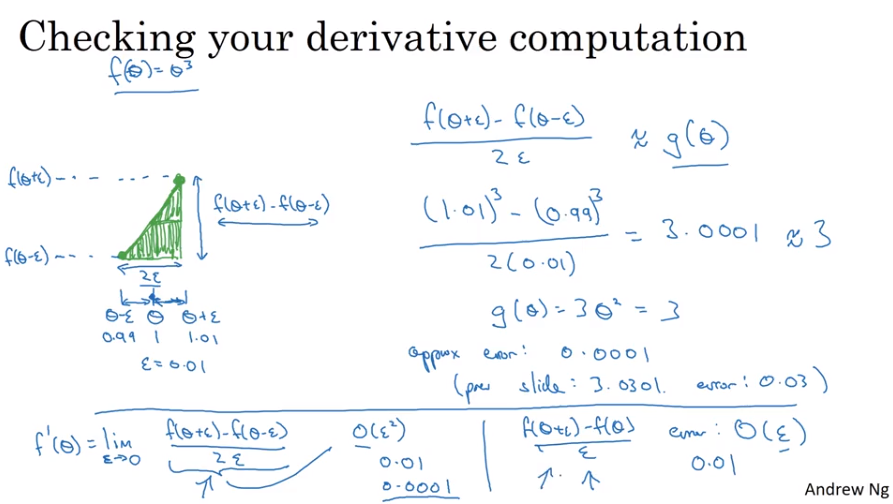 Checking your derivative computation
f(θ) = θ³
f(θ+ε)
f(θ-ε)
f(θ+ε) - f(θ-ε)
2ε
θ-ε θ θ+ε
0.99 1 1.01
ε = 0.01
f(θ+ε) - f(θ-ε) / 2ε ≈ g(θ)
(1.01)³ - (0.99)³ / 2(0.01) = 3.0001 ≈ 3
g(θ) = 3θ² = 3
approx error: 0.0001
(prev slide: 3.0301. error: 0.03)
f'(θ) = lim ε→0 f(θ+ε) - f(θ-ε) / 2ε
O(ε²)
0.01
0.0001
f(θ+ε) - f(θ) / ε
error: O(ε)
0.01
Andrew Ng